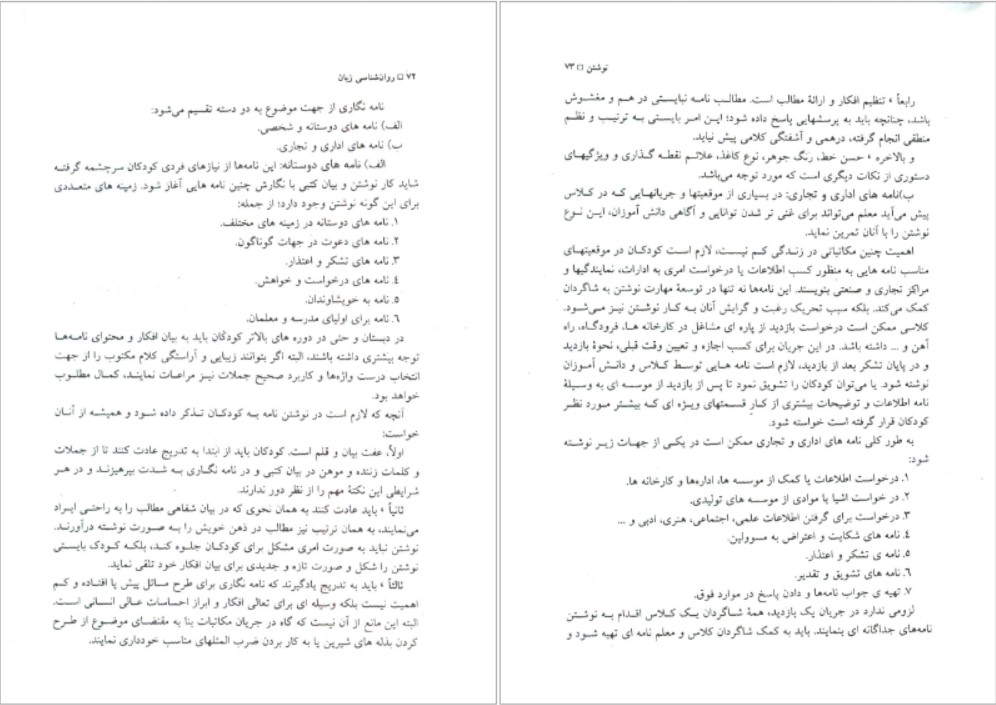 ۷۲ □ روان‌شناسی زبان
نامه نگاری از جهت موضوع به دو دسته تقسیم می‌شود:
الف) نامه های دوستانه و شخصی.
ب) نامه های اداری و تجاری.
الف) نامه های دوستانه: این نامه‌ها از نیازهای فردی کودکان سرچشمه گرفته
شاید کار نوشتن و بیان کتبی با نگارش چنین نامه هایی آغاز شود. زمینه های متعددی
برای این گونه نوشتن وجود دارد؛ از جمله:
۱. نامه های دوستانه در زمینه های مختلف.
۲. نامه های دعوت در جهات گوناگون.
۳. نامه های تشکر و اعتذار.
٤. نامه های درخواست و خواهش.
۵. نامه به خویشاوندان.
٦. نامه برای اولیای مدرسه و معلمان.
در دبستان و حتی در دوره های بالاتر کودکان باید به بیان افکار و محتوای نامه‌ها
توجه بیشتری داشته باشند، البته اگر بتوانند زیبایی و آراستگی کلام مکتوب را از جهت
انتخاب درست واژه‌ها و کاربرد صحیح جملات نیز مراعات نمایند، کمال مطلوب
خواهد بود.
آنچه که لازم است در نوشتن نامه به کودکان تذکر داده شود و همیشه از آنان
خواست:
اولاً، عفت بیان و قلم است. کودکان باید از ابتدا به تدریج عادت کنند تا از جملات
و کلمات زننده و موهن در بیان کتبی و در نامه نگاری به شدت بپرهیزند و در هر
شرایطی این نکتهٔ مهم را از نظر دور ندارند.
ثانیاً ، باید عادت کنند به همان نحوی که در بیان شفاهی مطالب را به راحتی ایراد
می‌نمایند، به همان ترتیب نیز مطالب در ذهن خویش را به صورت نوشته درآورند.
نوشتن نباید به صورت امری مشکل برای کودکان جلوه کند، بلکه کودک بایستی
نوشتن را شکل و صورت تازه و جدیدی برای بیان افکار خود تلقی نماید.
ثالثاً ، باید به تدریج یادگیرند که نامه نگاری برای طرح مسائل پیش پا افتاده و کم
اهمیت نیست بلکه وسیله ای برای تعالی افکار و ابراز احساسات عالی انسانی است.
البته این مانع از آن نیست که گاه در جریان مکاتبات بنا به مقتضای موضوع از طرح
کردن بذله های شیرین یا به کار بردن ضرب المثلهای مناسب خودداری نمایند.
نوشتن □ ۷۳
رابعاً ، تنظیم افکار و ارائهٔ مطالب است. مطالب نامه نبایستی در هم و مغشوش
باشد، چنانچه باید به پرسشهایی پاسخ داده شود؛ این امر بایستی به ترتیب و نظم
منطقی انجام گرفته، درهمی و آشفتگی کلامی پیش نیاید.
و بالاخره ، حسن خط، رنگ جوهر، نوع کاغذ، علائم نقطه گذاری و ویژگیهای
دستوری از نکات دیگری است که مورد توجه می‌باشد.
ب)نامه های اداری و تجاری: در بسیاری از موقعیتها و جریانهایی که در کلاس
پیش می‌آید معلم می‌تواند برای غنی تر شدن توانایی و آگاهی دانش آموزان، این نوع
نوشتن را با آنان تمرین نماید.
اهمیت چنین مکاتباتی در زندگی کم نیست، لازم است کودکان در موقعیتهای
مناسب نامه هایی به منظور کسب اطلاعات یا درخواست امری به ادارات، نمایندگیها و
مراکز تجاری و صنعتی بنویسند. این نامه‌ها نه تنها در توسعهٔ مهارت نوشتن به شاگردان
کمک می‌کند، بلکه سبب تحریک رغبت و گرایش آنان به کار نوشتن نیز می‌شود.
کلاسی ممکن است درخواست بازدید از پاره ای مشاغل در کارخانه ها، فرودگاه، راه
آهن و ... داشته باشد. در این جریان برای کسب اجازه و تعیین وقت قبلی، نحوهٔ بازدید
و در پایان تشکر بعد از بازدید، لازم است نامه هایی توسط کلاس و دانش آموزان
نوشته شود. یا می‌توان کودکان را تشویق نمود تا پس از بازدید از موسسه ای به وسیلهٔ
نامه اطلاعات و توضیحات بیشتری از کار قسمتهای ویژه ای که بیشتر مورد نظر
کودکان قرار گرفته است خواسته شود.
به طور کلی نامه های اداری و تجاری ممکن است در یکی از جهات زیر نوشته
شود:
۱. درخواست اطلاعات یا کمک از موسسه ها، اداره‌ها و کارخانه ها.
۲. در خواست اشیا یا موادی از موسسه های تولیدی.
۳. درخواست برای گرفتن اطلاعات علمی، اجتماعی، هنری، ادبی و ...
٤. نامه های شکایت و اعتراض به مسوولین.
۵. نامه ی تشکر و اعتذار.
٦. نامه های تشویق و تقدیر.
۷. تهیه ی جواب نامه‌ها و دادن پاسخ در موارد فوق.
لزومی ندارد در جریان یک بازدید، همهٔ شاگردان یک کلاس اقدام به نوشتن
نامه‌های جداگانه ای بنمایند. باید به کمک شاگردان کلاس و معلم نامه ای تهیه شود و